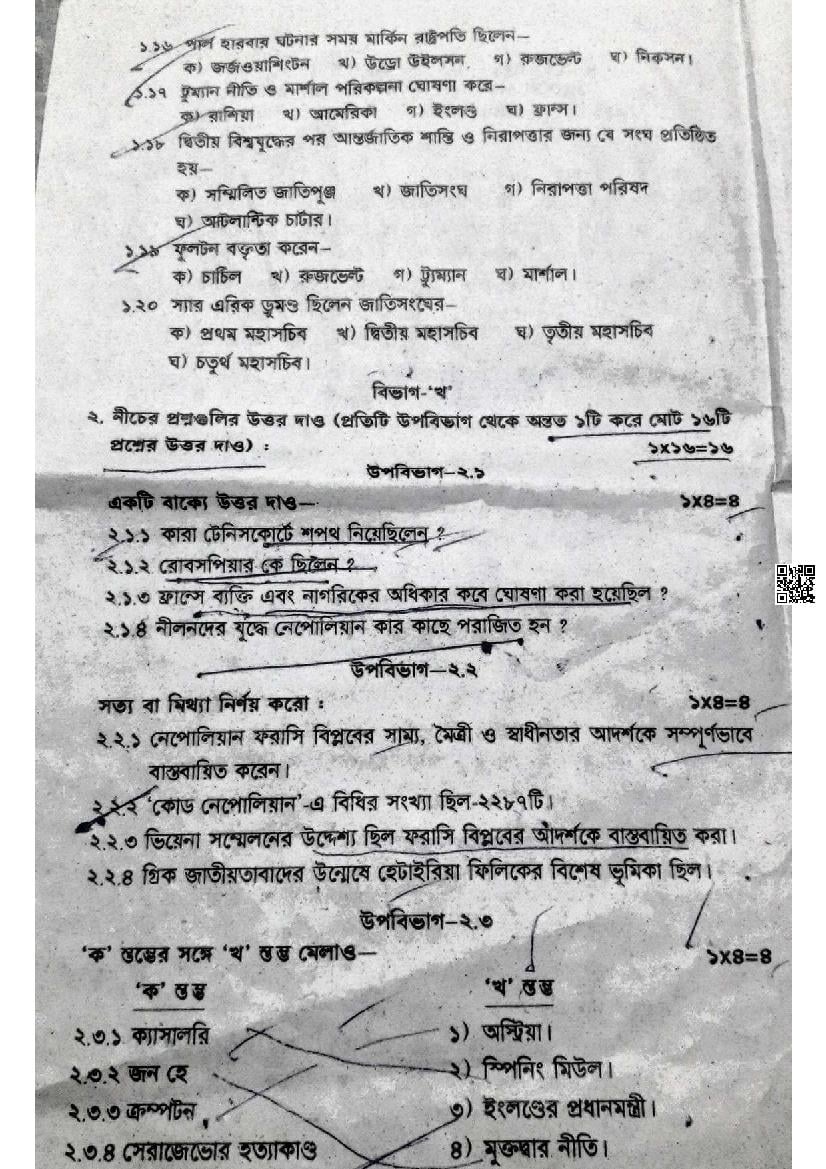 ১.১৬ পার্ল হারবার ঘটনার সময় মার্কিন রাষ্ট্রপতি ছিলেন–
ক) জর্জওয়াশিংটন খ) উড্রো উইলসন গ) রুজভেল্ট ঘ) নিকসন।
১.১৭ ট্রুম্যান নীতি ও মার্শাল পরিকল্পনা ঘোষণা করে–
ক) রাশিয়া খ) আমেরিকা গ) ইংলণ্ড ঘ) ফ্রান্স।
১.১৮ দ্বিতীয় বিশ্বযুদ্ধের পর আন্তর্জাতিক শান্তি ও নিরাপত্তার জন্য যে সংঘ প্রতিষ্ঠিত
হয়—
ক) সম্মিলিত জাতিপুঞ্জ খ) জাতিসংঘ গ) নিরাপত্তা পরিষদ
ঘ) আটলান্টিক চার্টার।
১.১৯ ফুলটন বক্তৃতা করেন–
ক) চার্চিল খ) রুজভেল্ট গ) ট্রুম্যান ঘ) মার্শাল।
১.২০ স্যার এরিক ড্রুমণ্ড ছিলেন জাতিসংঘের–
ক) প্রথম মহাসচিব খ) দ্বিতীয় মহাসচিব ঘ) তৃতীয় মহাসচিব
ঘ) চতুর্থ মহাসচিব।
বিভাগ-‘খ’
২. নীচের প্রশ্নগুলির উত্তর দাও (প্রতিটি উপবিভাগ থেকে অন্তত ১টি করে মোট ১৬টি
প্রশ্নের উত্তর দাও) : ১X১৬=১৬
উপবিভাগ–২.১
একটি বাক্যে উত্তর দাও— ১X৪=৪
২.১.১ কারা টেনিসকোর্টে শপথ নিয়েছিলেন ?
২.১.২ রোবসপিয়ার কে ছিলেন ?
২.১.৩ ফ্রান্সে ব্যক্তি এবং নাগরিকের অধিকার কবে ঘোষণা করা হয়েছিল ?
২.১.৪ নীলনদের যুদ্ধে নেপোলিয়ান কার কাছে পরাজিত হন ?
উপবিভাগ–২.২
সত্য বা মিথ্যা নির্ণয় করো : ১X৪=৪
২.২.১ নেপোলিয়ান ফরাসি বিপ্লবের সাম্য, মৈত্রী ও স্বাধীনতার আদর্শকে সম্পূর্ণভাবে
বাস্তবায়িত করেন।
২.২.২ ‘কোড নেপোলিয়ান’-এ বিধির সংখ্যা ছিল-২২৮৭টি।
২.২.৩ ভিয়েনা সম্মেলনের উদ্দেশ্য ছিল ফরাসি বিপ্লবের আদর্শকে বাস্তবায়িত করা।
২.২.৪ গ্রিক জাতীয়তাবাদের উন্মেষে হেটাইরিয়া ফিলিকের বিশেষ ভূমিকা ছিল।
উপবিভাগ-২.৩
‘ক’ স্তম্ভের সঙ্গে ‘খ’ স্তম্ভ মেলাও— ১X৪=৪
‘ক’ স্তম্ভ ‘খ’ স্তম্ভ
২.৩.১ ক্যাসালরি ১) অস্ট্রিয়া।
২.৩.২ জন হে ২) স্পিনিং মিউল।
২.৩.৩ ক্রম্পটন ৩) ইংলণ্ডের প্রধানমন্ত্রী।
২.৩.৪ সেরাজেভোর হত্যাকাণ্ড ৪) মুক্তদ্বার নীতি।